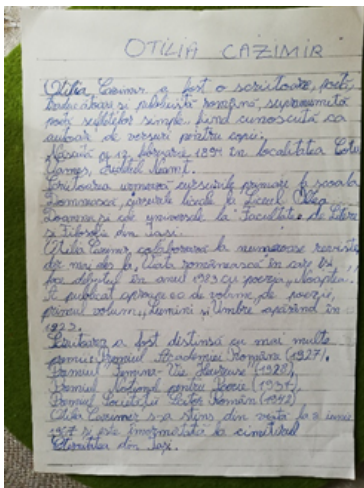 OTILIA CAZIMIR
Otilia Cazimir a fost o scriitoare, poetă,
traducătoare și publicistă română, supranumită
poeta sufletelor simple, fiind cunoscută ca
autoare de versuri pentru copii.
Născută pe 12 februarie 1894 în localitatea Cotu
Vameș, județul Neamț.
Scriitoarea urmează cursurile primare la școala
Domnească, cursurile liceale la Liceul Oltea
Doamna și cele universale la Facultatea de Litere
și Filosofie din Iași.
Otilia Cazimir colaborează la numeroase reviste
dar mai ales la "Viața românească" în care își
face debutul în anul cu poezia "Noaptea".
A publicat aproape 60 de volume, de poezii,
primul volum, Lumini și Umbre apărând în
1923.
Scriitoarea a fost distinsă cu mai multe
premii: Premiul Academiei Române (1927),
Premiul Femina-Vie Heureuse (1928),
Premiul Național pentru Poezie (1937),
Premiul Societății Scriitor Român (1942)
Otilia Cazimir s-a stins din viață la 8 iunie
1967 și este înmormântată la cimitirul
Eternitatea din Iași.